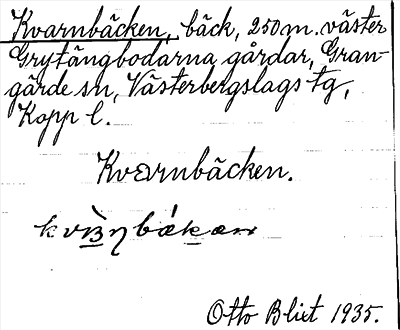 Kvarnbäcken, bäck, 250 m. väster
Grytängbodarna gårdar, Gran-
gärde sn, Västerbergslags tg,
Kopp l.
Kvarnbäcken.
Otto Blixt 1935.